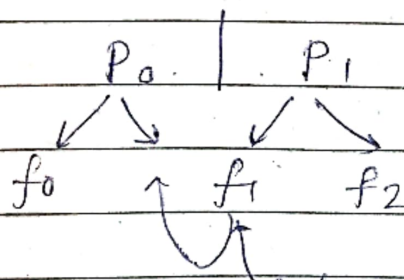 P0 P1
f0 f1 f2